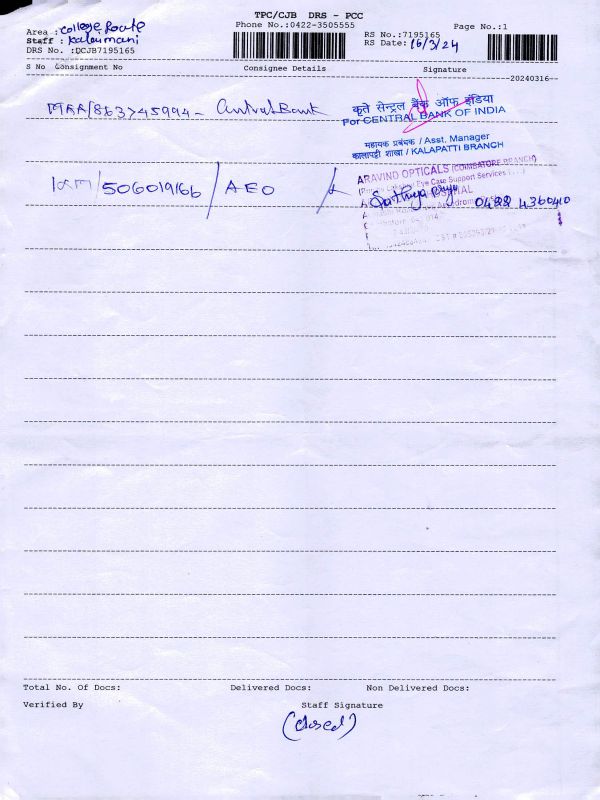 TPC/CJB DRS - PCC
Phone No.:0422-3505555
Page No.:1
Area : College Route
Staff : Kalaimani
DRS No. :DCJB7195165
RS No.:7195165
RS Date: 16/3/24
S No Consignment No Consignee Details Signature
20240316
MAA/863745994 - Central Bank
कृते सेन्ट्रल बैंक ऑफ इंडिया
For CENTRAL BANK OF INDIA
सहायक प्रबंधक / Asst. Manager
शाखा / KALAPATTI BRANCH
/506019166 / AEO
ARAVIND OPTICALS (COIMBATORE BRANCH)
Eye Case Support Services
Sathya 0422 4360410
Total No. Of Docs: Delivered Docs: Non Delivered Docs:
Verified By Staff Signature
(closed)